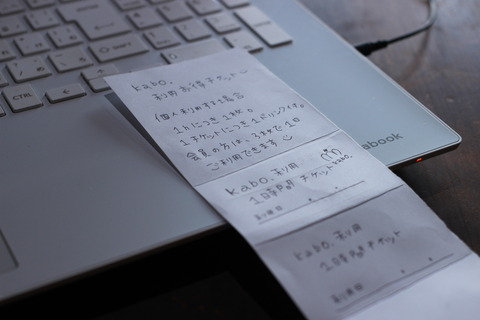 kabo.
利用お得チケット
個人利用する場合
1hにつき1枚。
1チケットにつき1ドリンク付き。
会員の方は、3枚で1日
ご利用できます
kabo. 利用
1時間 チケット
kabo.
利用日
kabo. 利用
1時間 チケット
利用日
abook
CTRL
SHIFT